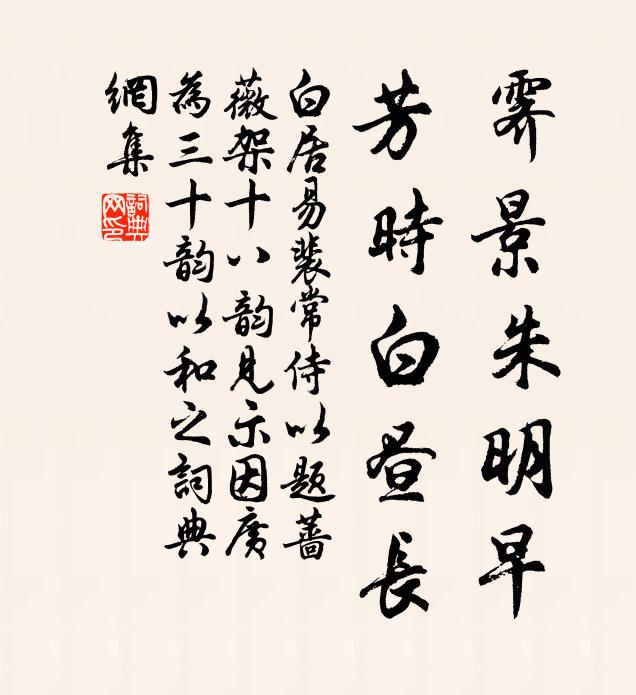 霽景朱明早
芳時白晝長
白居易裴常侍以題薔
薇架十八韵見示因廣
為三十韵以和之詞典
網集
詞典
网印